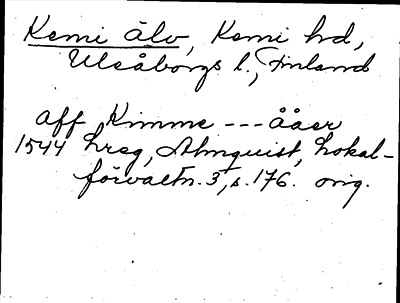 Kemi älv, Kemi hrd,
Uleåborgs l., Finland
aff Kimme --- ååer
1544 Lreg, Almquist, Lokal-
förvaltn. 3, s. 176. orig.